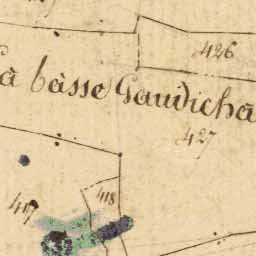 426
à bàsse Gaudicha
427
417
418